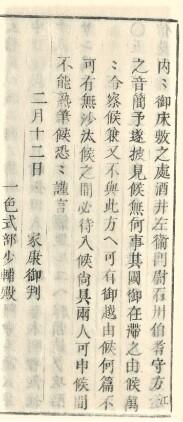 内〻御床敷之處酒井左衞門尉石川伯耆守方迄
之音簡予遂披見候無何事其國御在滯之由候萬
〻令察候兼又不與此方へ可有御越由候何篇不
可有無沙汰候之間必待入候尚具兩人可申候間
不能熟筆候恐〻謹言
二月十二日　家康御判
一色式部少輔殿